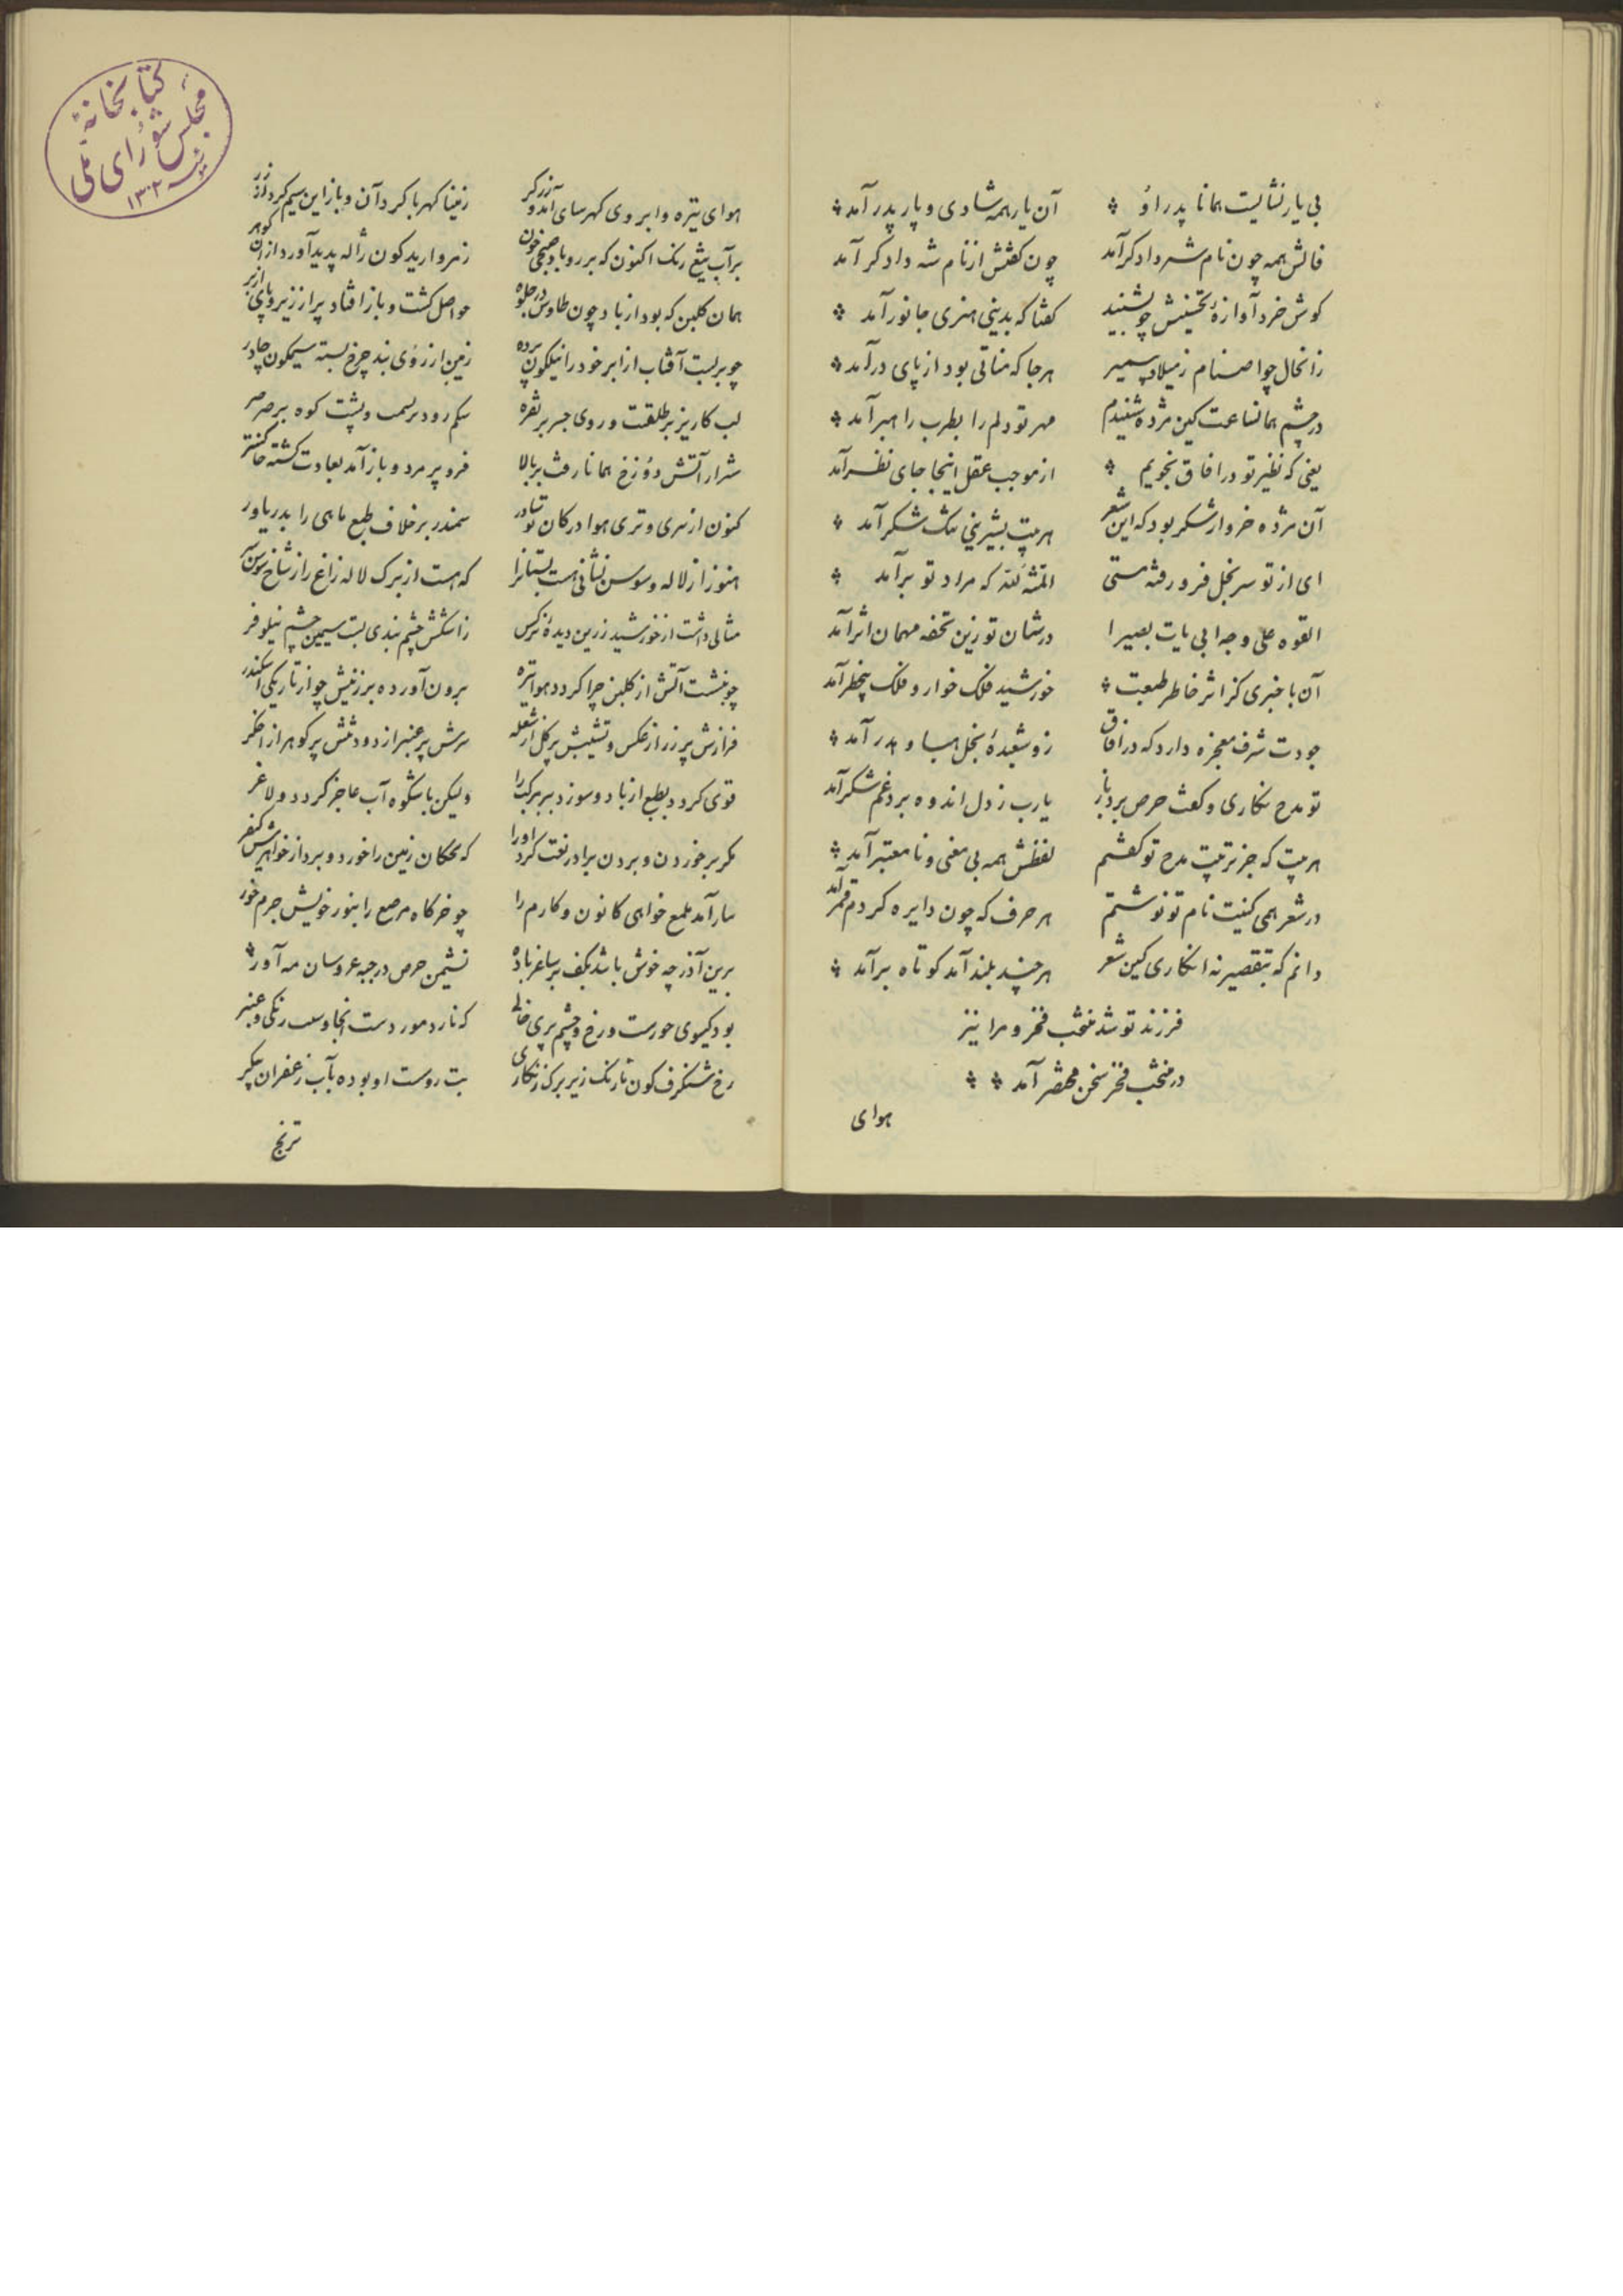 بی یار نشایست همانا پدر اوُ آن یار همه شادی و یار پدر آمد
فالش همه چون نام شه دادگر آمد چون کفتش از نام شه دادکر آمد
کوش خرد آوازهٔ تحنیتش چو شنید کفتا که بدینی هنری جانور آمد
زانحال چو اصنام ز میلاد پیمبر هرجا که مناتی بود از پای درآمد
در چشم همانساعت کین مژده شنیدم مهر تو دلم را بطرب راهبر آمد
یعنی که نظیر تو در افاق نجویم از موجب عقل اینجا جای نظر آمد
آن مژده خروار شکر بود که این شعر هر بیت بشیرینی تنک شکر آمد
ای از تو سر بخل فرو رفته مستی المنة لله که مراد تو برآمد
القوه علی وجه ابی یات بصیرا درشان تو زین تحفه مهمان اثر آمد
آن با خبری کز اثر خاطر طبعت خورشید فلک خوار و فلک بیخطر آمد
جودت شرف معجزه دارد که در افاق زو شعبدهٔ بخل هبا و هدر آمد
تو مدح نکاری و کفت حرص برد باز یارب ز دل اندوه برد غم شکر آمد
هر بیت که جز ترتیب مدح تو کفتم لفظش همه بی معنی و نامعتبر آمد
در شعر همی کنیت نام تو نوشتم هر حرف که چون دایره کردم قمر آمد
دانم که بتقصیر نه انکاری کین شعر هر چند بلند آمد کوتاه برآمد
فرزند تو شد منتخب فخر و مرا نیز
در منتخب فخر سخن مختصر آمد
هوای
کتابخانهٔ
مجلس شورای ملی
۱۳۰۲
هوای تیره وابروی کهرسای آمد و زرکر زمینا کهربا کرد آن و باز این سیم کرد از زر
برآب تیغ رنک اکنون که بر رو باد ز مروارید کون ژاله پدید آورد از آن کوهر
همان کلبن که بود از باد چون طاوس در جلوه حواصل کشت و باز افتاد پر از زیر و پای از بر
چو بربست آفتاب از ابر خود را نیلکون پرده زمین از رزوی بند چرخ بسته سیمکون چادر
لب کاریز بر طلقت و روی جسر بر نقره شکم رود بر سم و پشت کوه بر مرمر
شرار آتش دوزخ همانا رفت بر بالا فرو پر مرد و باز آمد بعادت کشته خاکستر
کنون از سری و تری هوا در کان سمندر بر خلاف طبع ماهی را بدر یاور
هنوز از لاله و سوسن نشانی هست بستانرا که هست از برک لاله زاغ را ز شاخ سوسن
مثالی داشت از خورشید زرین دیدهٔ نرکس زاشکش چشم بندی بست سیمین چشم نیلوفر
چو بنشست آتش از کلبن چرا کردد هوا تیره برون آورده بر زنیش چو از تاریکی اسکندر
فرازش پر زر از عکس و نشیبش پرکل از شعله سرش پر عنبر از دود و تنش پر کوهر از اخکر
قوی کردد بطبع از باد و سوزد ببر برک را ولیکن با شکوه آب عاجز کردد و لاغر
مکر بر خوردن و بردن برادر نعت کرد او را که نخکان زمین را خورد و برد از خواهرش کیفر
بیار آمد ملمع خواهی کانون و کارم را چو خرکاه مرصع را بنور خویش جرم خور
برین آذر چه خوش باشد بکف بر ساغر باده نشیمن حرص در جبه عروسان مه آور
بود کیسوی حورست و رخ و چشم پری خالی که نارد مور دست انجا و سب رنکی و عنبر
رخ شنکرف کون نارنک زیر برک زنکاری بت روست او بوده بآب زعفران پیکر
ترنج